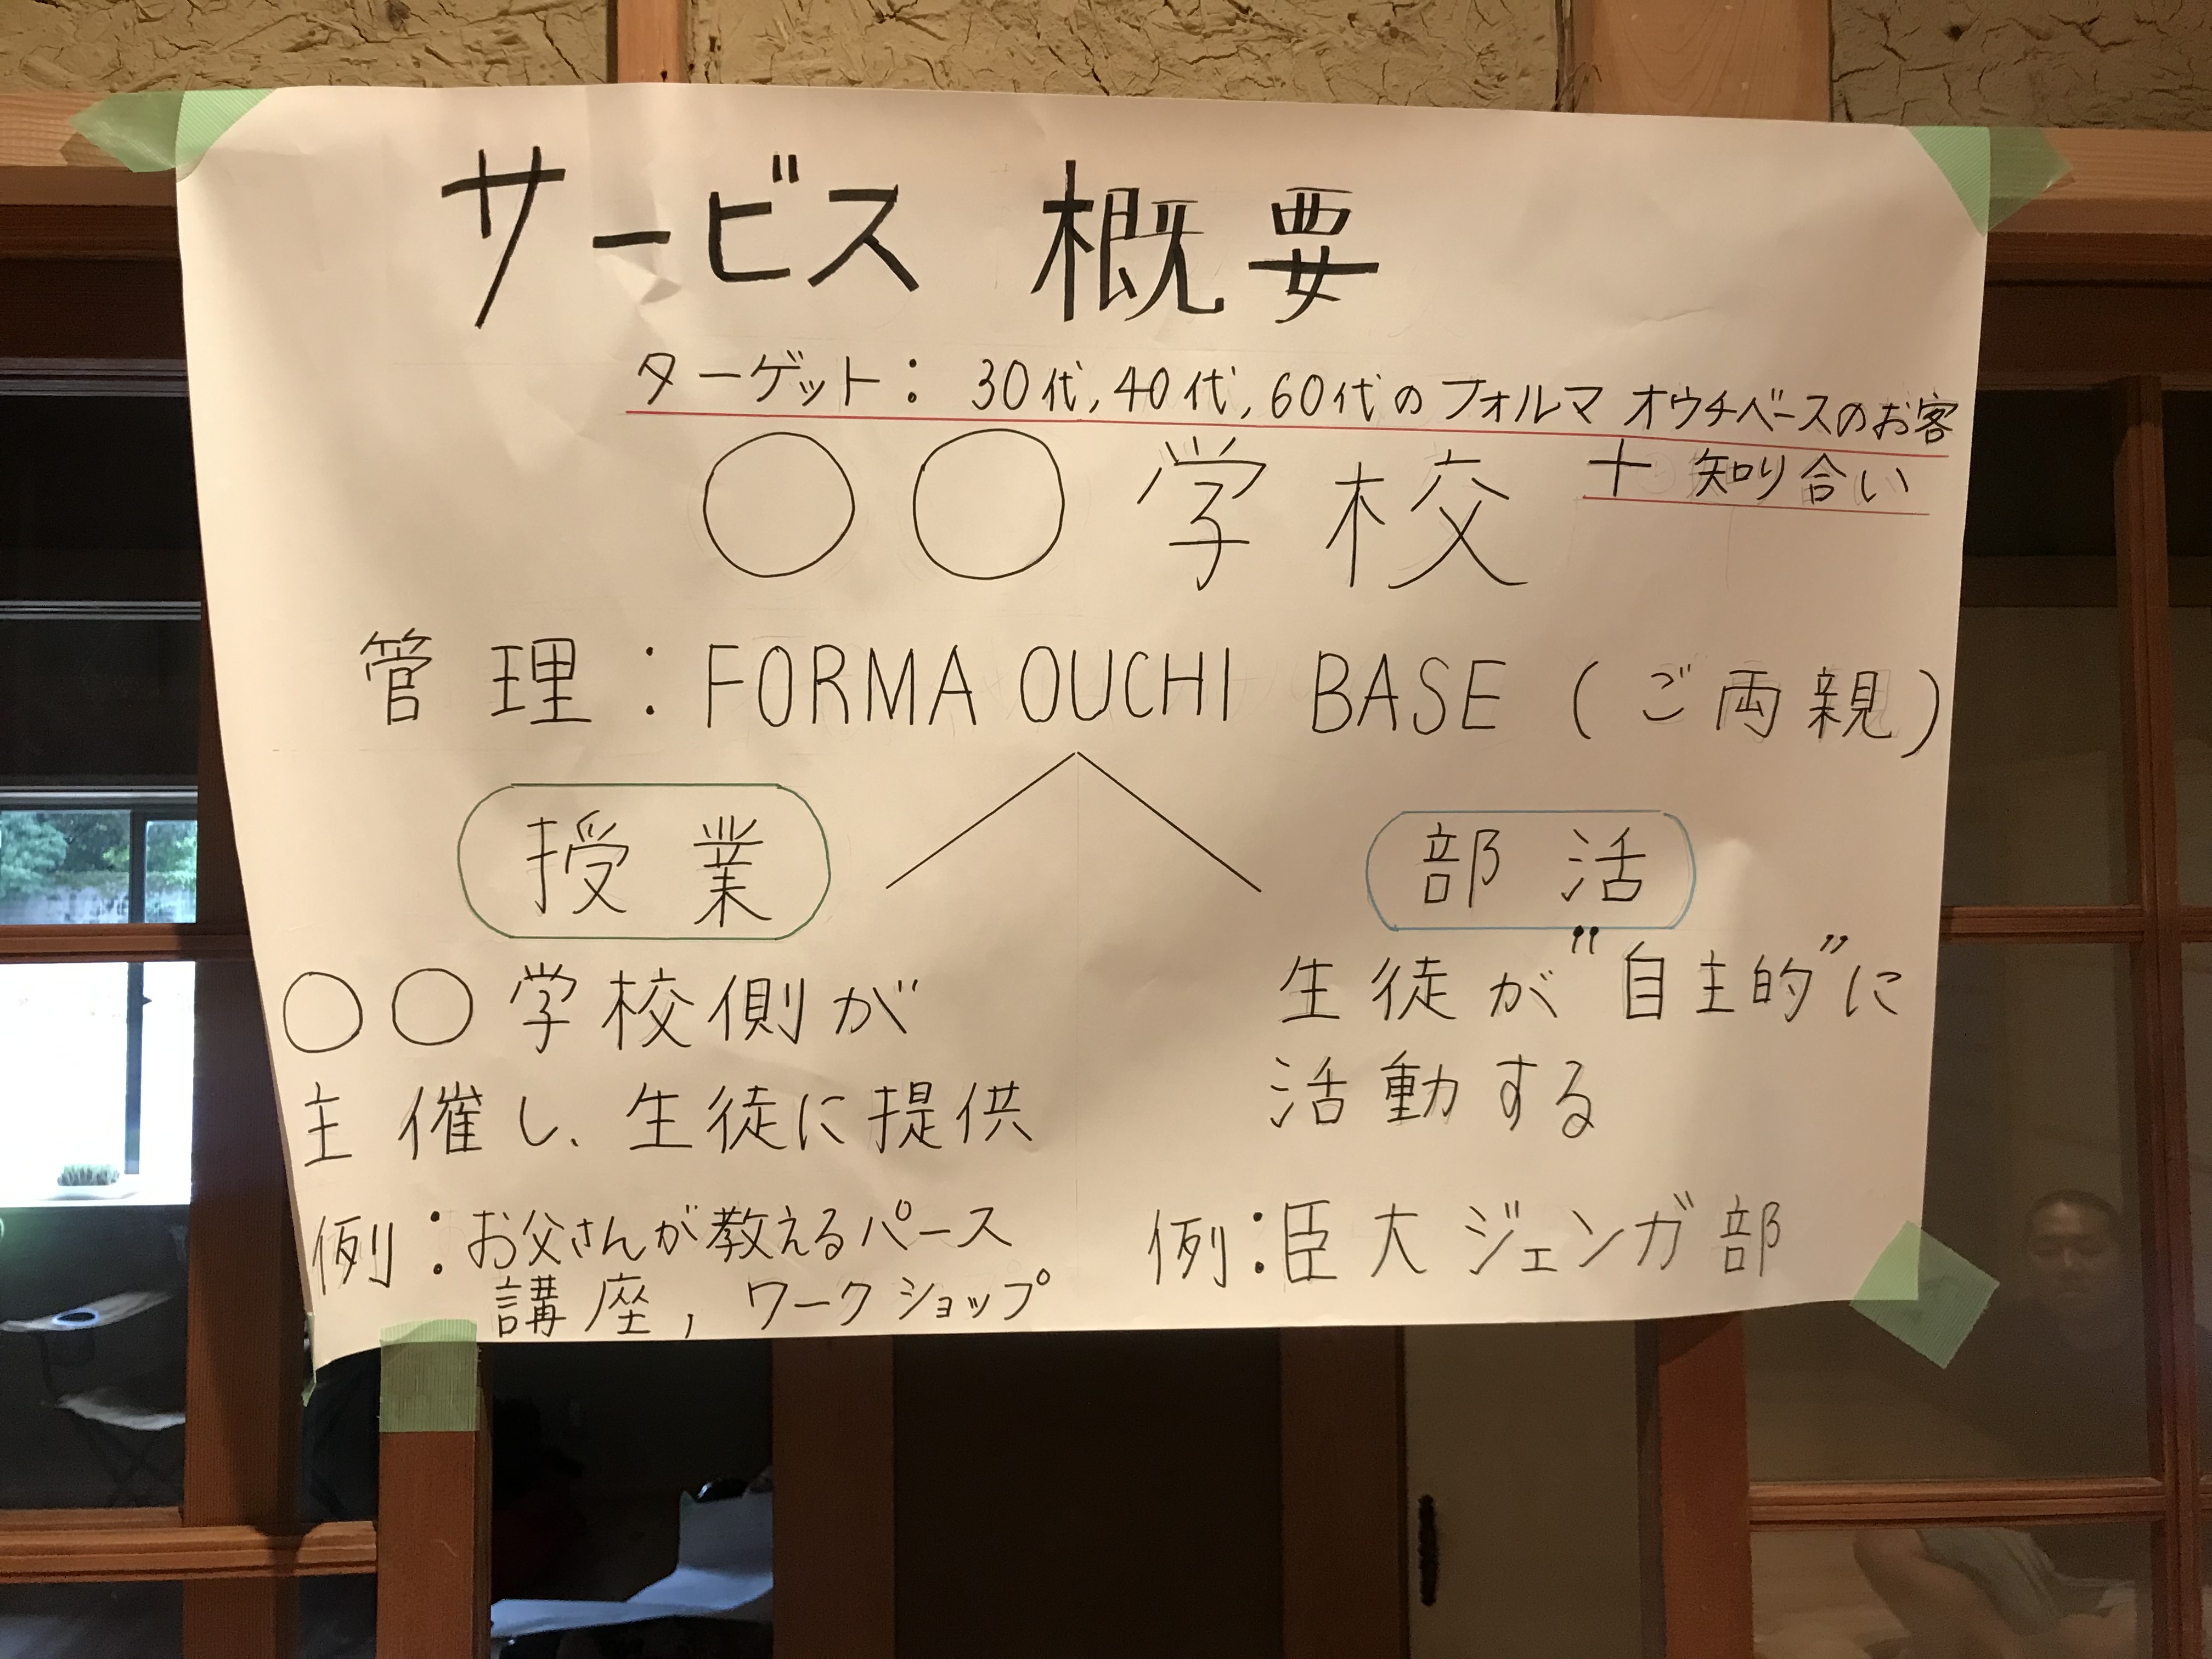 サービス 概要
ターゲット： 30代, 40代, 60代のフォルマ オウチベースのお客
+ 知り合い
〇〇学校
管理：FORMA OUCHI BASE (ご両親)
授業
〇〇学校側が
主催し、生徒に提供
例：お父さんが教えるパース
講座, ワークショップ
部活
生徒が"自主的"に
活動する
例：臣大ジェンガ部